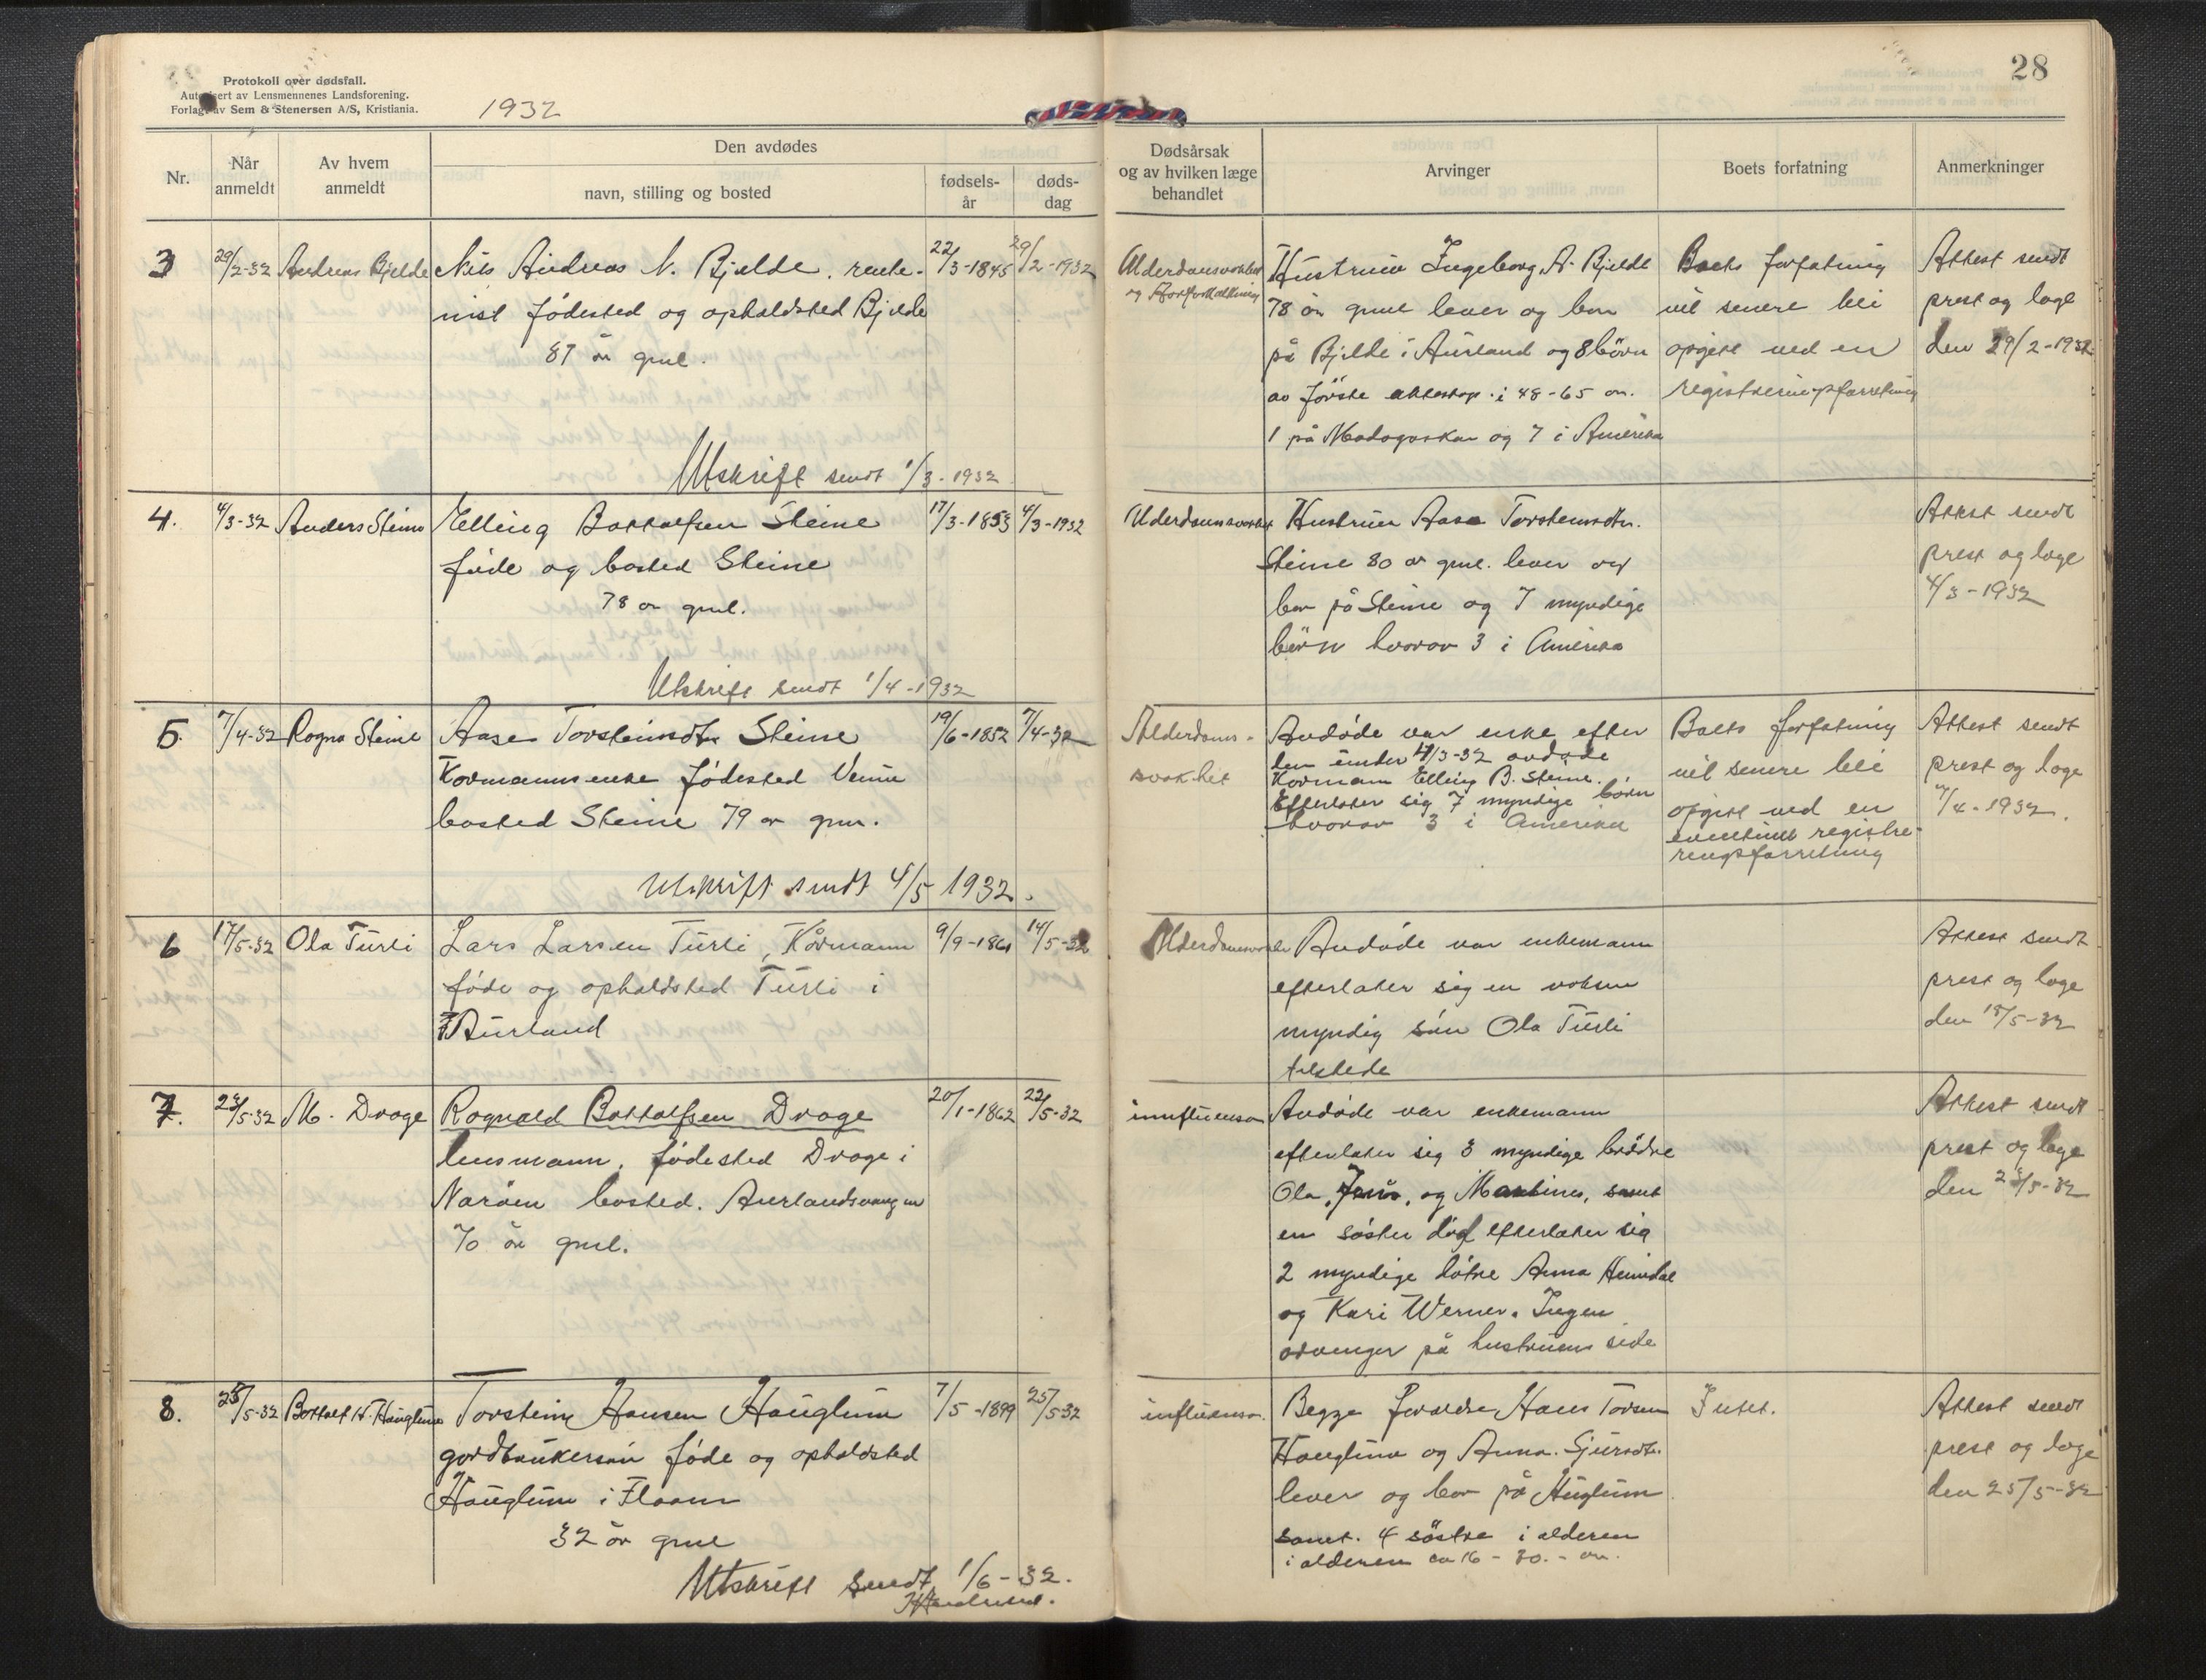 Protokoll over dødsfall.
Autorisert av Lensmennenes Landsforening.
Forlagt av Sem & Stenersen A/S, Kristiania.
1932
28
Nr.
Når anmeldt
Av hvem anmeldt
Den avdødes
navn, stilling og bosted
fødsels-år
døds-dag
Dødsårsak og av hvilken læge behandlet
Arvinger
Boets forfatning
Anmerkninger
3
29/2-32
Andreas Bjelde
Nils Andreas N. Bjelde, rente-
nist fødested og opholdsted Bjelde
87 år gml.
22/3-1845
29/2-1932
Alderdomssvakhet
og
Hustruen Ingeborg A. Bjelde
78 år gml lever og bor
på Bjelde i Aurland og 8 børn
av første ekteskap i 48-65 år.
1 på Madagaskar og 7 i Amerika
Boets forfatning
vil senere bli
opgitt ved en
registreringsforretning
Attest sendt
prest og læge
den 29/2-1932
Utskrift sendt 1/3-1932
4.
4/3-32
Anders Steine
Elling Bottolfsen Steine
føde og bosted Steine
78 år gml.
17/3-1853
4/3-1932
Alderdomssvakhet
Hustruen Aase Torsteinsdtr.
Steine 80 år gml. lever og
bor på Steine og 7 myndige
børn hvorav 3 i Amerika
Attest sendt
prest og læge
4/3-1932
Utskrift sendt 1/4-1932
5.
7/4-32
Ragna Steine
Aase Torsteinsdtr Steine
Kårmannsenke fødested Venne
bosted Steine 79 år gml.
19/6-1852
7/4-32
Alderdoms-
svakhet
Avdøde var enke efter
den under 4/3-32 avdøde
Kårmann Elling B. Steine.
Efterlater sig 7 myndige børn
hvorav 3 i Amerika
Boets forfatning
vil senere bli
opgitt ved en
eventuell registre-
ringsforretning
Attest sendt
prest og læge
7/4-1932.
Utskrift sendt 4/5 1932.
6
17/5-32
Ola Turli
Lars Larsen Turli, Kårmann
føde og opholdsted Turli i
Aurland
9/9-1861
14/5-32
Alderdomssvakhet
Avdøde var enkemann
efterlater sig en voksen
myndig søn Ola Turli
tilstede
Attest sendt
prest og læge
den 18/5-32
7.
23/5-32
M. Drage
Ragnvald Bottolfsen Drage
lensmann, fødested Drage i
Nærøen bosted. Aurlandsvangen
70 år gml.
20/1-1862
22/5-32
innfluensa
Avdøde var enkemann
efterlater sig 3 myndige brødre
Ola, Jens, og Martinus, samt
en søster død efterlater sig
2 myndige døtre Anna Heimdal
og Kari Werner. Ingen
arvinger på hustruens side
Attest sendt
prest og læge
den 23/5-32
8.
25/5-32
Bottolf H. Hauglum
Torstein Hansen Hauglum
gårdbrukersøn føde og opholdsted
Hauglum i Flaam
32 år gml
7/5-1899
25/5-32
influensa.
Begge foreldre Hans Torsen
Hauglum og Anna Sjursdtr.
lever og bor på Huglum
samt. 4 søstre i alderen
i alderen ca 16 - 30. - år.
Intet.
Attest sendt
prest og læge
den 25/5-32
Utskrift sendt 1/6-32.